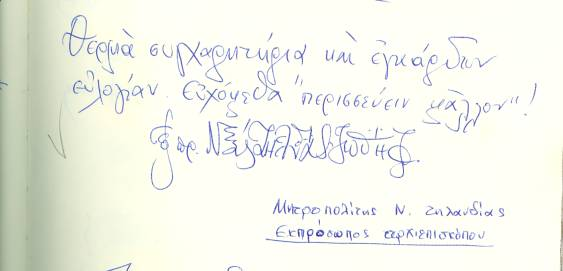 Θερμὰ συγχαρητήρια καὶ ἐγκάρδιον
εὐλογίαν. εὐχόμεθα "περισσεύειν μᾶλλον"!
Μητροπολίτης Ν. Ζηλανδίας
Εκπρόσωπος αρχιεπισκόπου